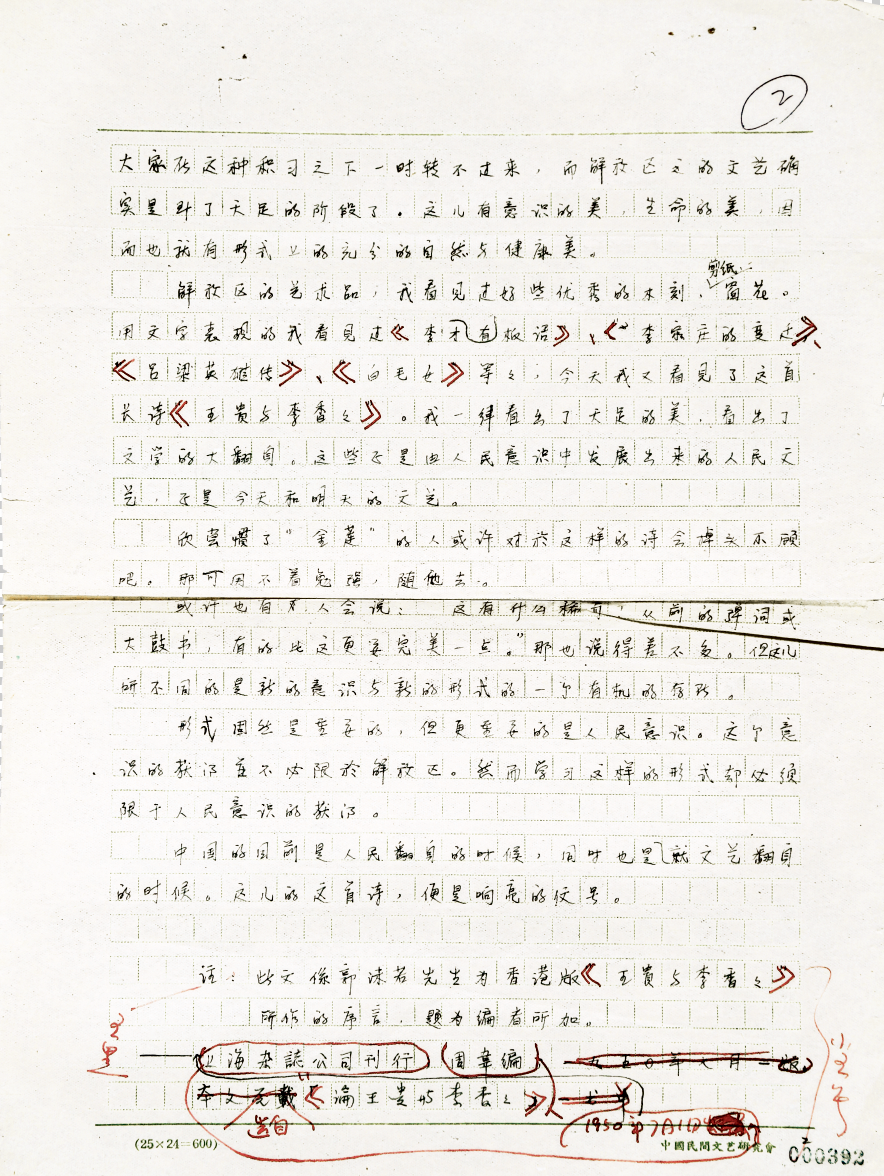 2
大家在这种积习之下一时转不过来，而解放区之的文艺确
实是到了天足的阶段了。这儿有意识的美，生命的美，因
而也就有形式上的充分的自然与健康美。
剪纸
解放区的艺术品，我看见过好些优秀的木刻、窗花。
用文字表现的我看见过《李有才板话》、《李家庄的变迁》、
《吕梁英雄传》、《白毛女》等等，今天我又看见了这首
长诗《王贵与李香香》。我一律看出了天足的美，看出了
文学的大翻身。这些正是由人民意识中发展出来的人民文
艺，正是今天和明天的文艺。
欣赏惯了“金莲”的人或许对于这样的诗会掉头不顾
吧。那可用不着勉强，随他去。
或许也有人会说：这有什么稀奇，从前的弹词或
大鼓书，有的比这更要完美一点。”那也说得差不多。但这儿
所不同的是新的意识与新的形式的一个有机的存在。
形式固然是重要的，但更重要的是人民意识。这个意
识的获得并不必限于解放区。然而学习这样的形式却必须
限于人民意识的获得。
中国的目前是人民翻身的时候，同时也是就文艺翻身
的时候。这儿的这首诗，便是响亮的信号。
註：此文係郭沫若先生为香港版《王贵与李香香》
所作的序言，题为编者所加。
——上海杂誌公司刊行 周韦编 一九五〇年七月一版
本文元载《論王贵与李香香》
选自
1950年7月1日
(25×24=600)
中國民間文艺研究會
000392